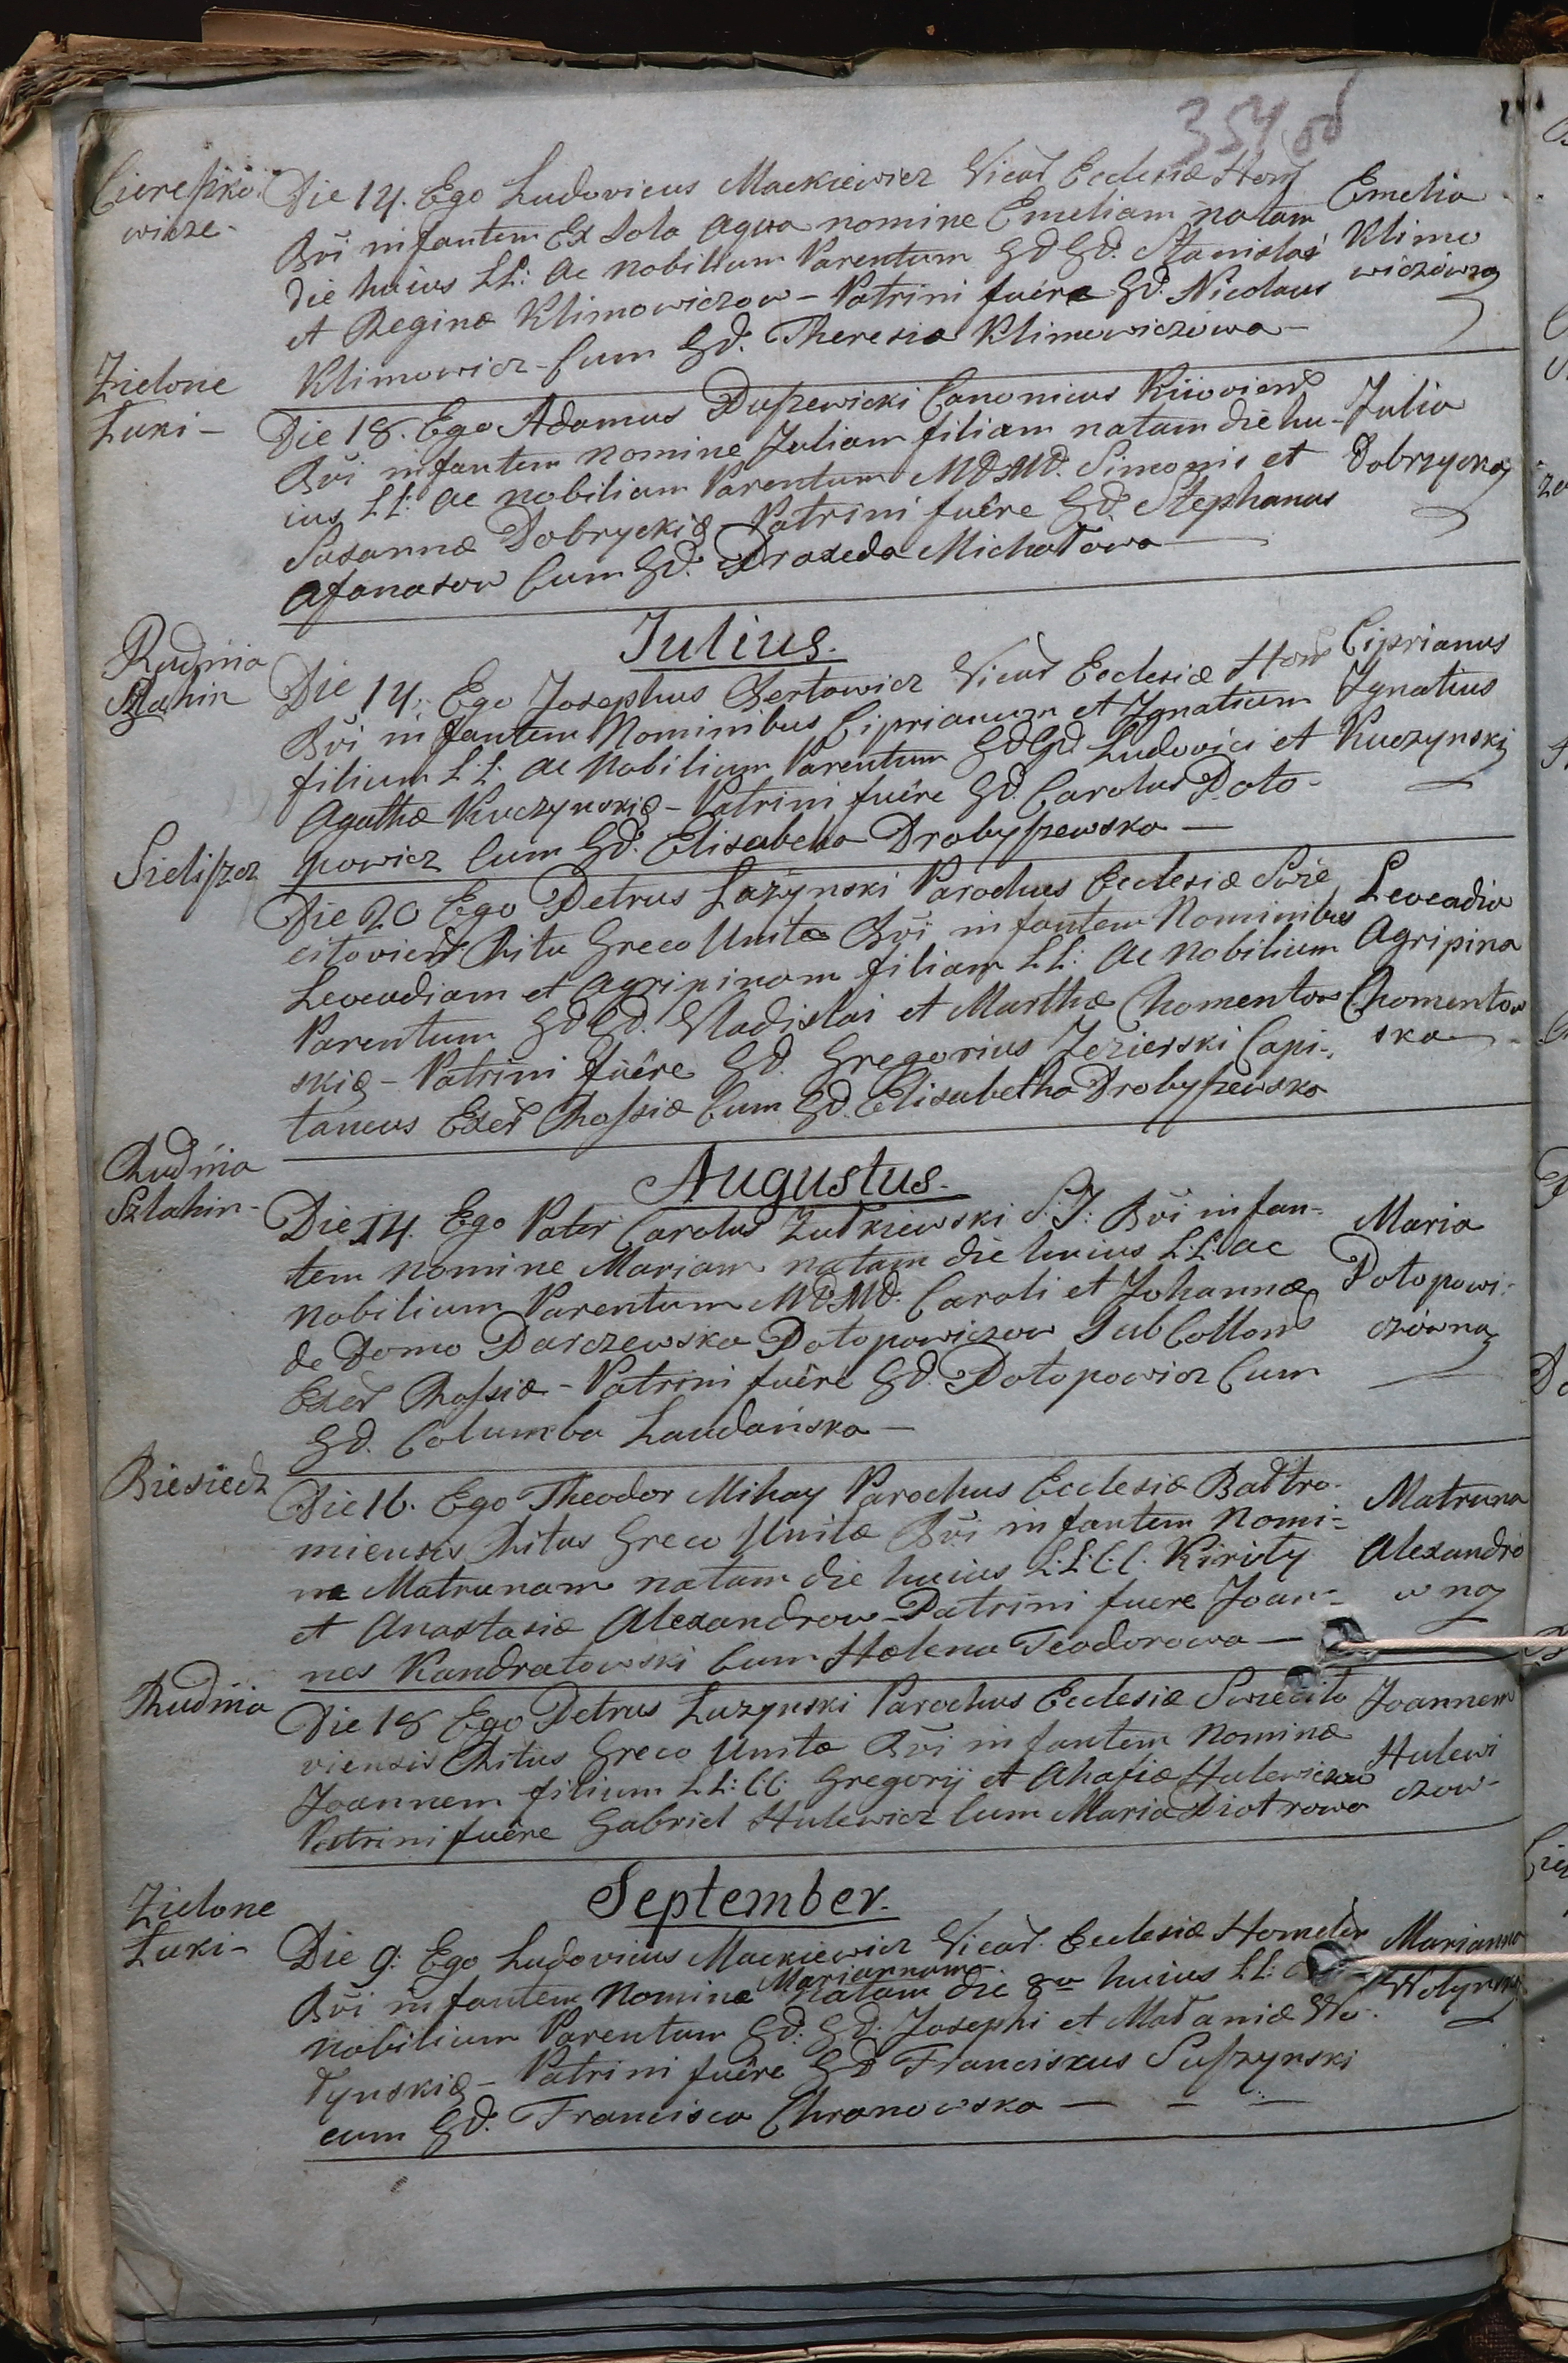 354 od
Cierefzko
wicze-
Die 14. Ego Ludovicus Mackiewicz Vicar Ecclesiæ Hom
Bvi infantem Ex Sola Aqua nomine Emeliam natam
die huius LL: ac Nobilium Parentum GdGd. Stanislai
et Reginæ Klimowiczow - Patrini fuere Gd. Nicolaus
Klimowicz - Cum Gd. Theresia Klimowiczowa -
Emelia
Klimo
wiczówna
Zielone
Łuki -
Die 18. Ego Adamus Dufzewicki Canonicus Kiioviens
Bvi infantem nomine Juliam filiam natam die hu-
ius LL: ac nobilium Parentum MdMd. Simonis et
Susannæ Dobryckię Patrini fuêre Gd. Stephanus
Afanasow Cum Gd. Praxeda Michałowa
Julia
Dobrzycka
Julius.
Rudnia
Szlahin
Die 14. Ego Josephus Bertowicz Vicar Ecclesiæ Hom
Bvi infantem Nominibus Ciprianum et Ignatium
filium L:L: ac Nobilium Parentum GdGd Ludovici et
Agathæ Kuczynskię - Patrini fuêre Gd. Carolus Poto-
powicz Cum Gd. Elisabetha Drobyfzewska -
Ciprianus
Ignatius
Kuczynski
Sielifzcz
Die 20 Ego Petrus Łazynski Parochus Ecclesiæ Swie
citoviens Ritu Greco Unitæ Bvi infantem Nominibus
Leocadiam et Agripinam filiam LL: ac Nobilium
Parentum GdGd. Vladislai et Marthæ Chomentow
skię - Patrini fuêre Gd. Gregorius Jezierski Capi-
taneus Exer Rofsiæ Cum Gd. Elisabetha Drobyfzewska
Leocadia
Agripina
Chomentow
ska
Augustus.
Rudnia
Szlahin-
Die 14. Ego Pater Carolus Zułkiewski S.J: Bvi infan-
tem nomine Mariam natam die huius L:L: ac
Nobilium Parentum MdMd. Caroli et Johannæ
de Domo Parczewska Potopowiczow SubCollon
Exer Rofsiæ - Patrini fuêre Gd. Potopowicz Cum
Gd. Columba Laudańska -
Maria
Potopowi-
czówna
Biesiedz
Die 16. Ego Theodor Mihay Parochus Ecclesiæ Bałtro-
miensis Ritus Greco Unitæ Bvi infantem Nomi-
ne Matrunam natam die huius L:L:C:C. Kiryły
et Anastasiæ Alexandrow - Patrini fuere Joan-
nes Kandratowski Cum Helena Teodorowa -
Matruna
Alexandro
wna
Rudnia
Die 18 Ego Petrus Łuzynski Parochus Ecclesiæ Swiecito
viensis Ritus Greco Unitæ Bvi infantem Nominæ
Joannem filium LL: CC: Gregorij et Ahafiæ Hulewiczow
Patrini fuêre Gabriel Hulewicz Cum Maria Piotrowa
Joannem
Hulewi
czow-
September.
Zielone
Łuki-
Die 9. Ego Ludovicus Mackiewicz Vicar. Ecclesiæ Homelen
Bvi infantem Nomine Mariannam natam die 8va huius LL:
Nobilium Parentum Gd: Gd: Josephi et Małaniæ Wo-
łynskię - Patrini fuêre Gd Franciskus Sufzynski
cum Gd. Francisca Chronowska -
Marianna
Wołynska